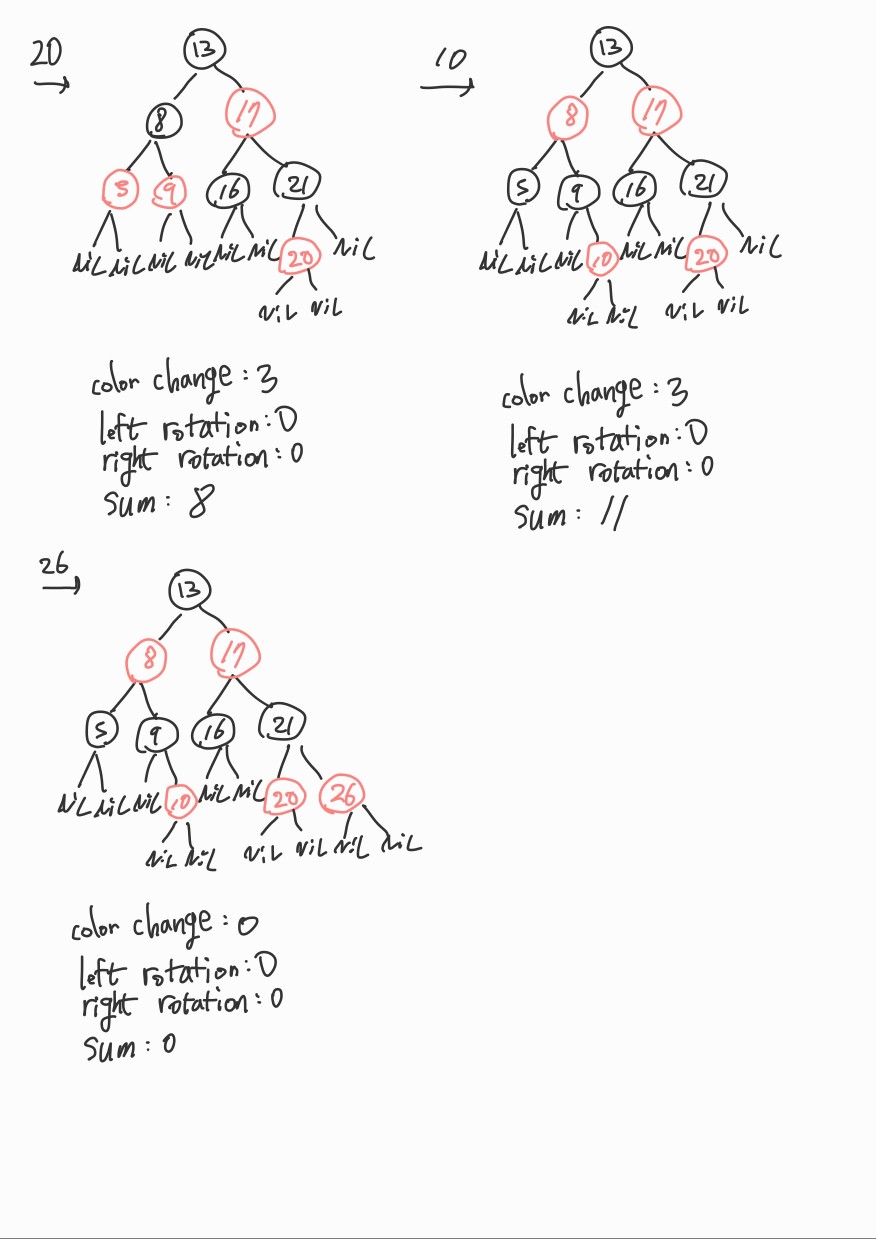 20
13
8 17
5 9 16 21
NiL NiL NiL NiL NiL NiL 20 NiL
NiL NiL
color change : 3
left rotation : 0
right rotation : 0
sum : 8
10
13
8 17
5 9 16 21
NiL NiL NiL 10 NiL NiL 20 NiL
NiL NiL NiL NiL
color change : 3
left rotation : 0
right rotation : 0
sum : 11
26
13
8 17
5 9 16 21
NiL NiL NiL 10 NiL NiL 20 26
NiL NiL NiL NiL NiL NiL
color change : 0
left rotation : 0
right rotation : 0
sum : 0